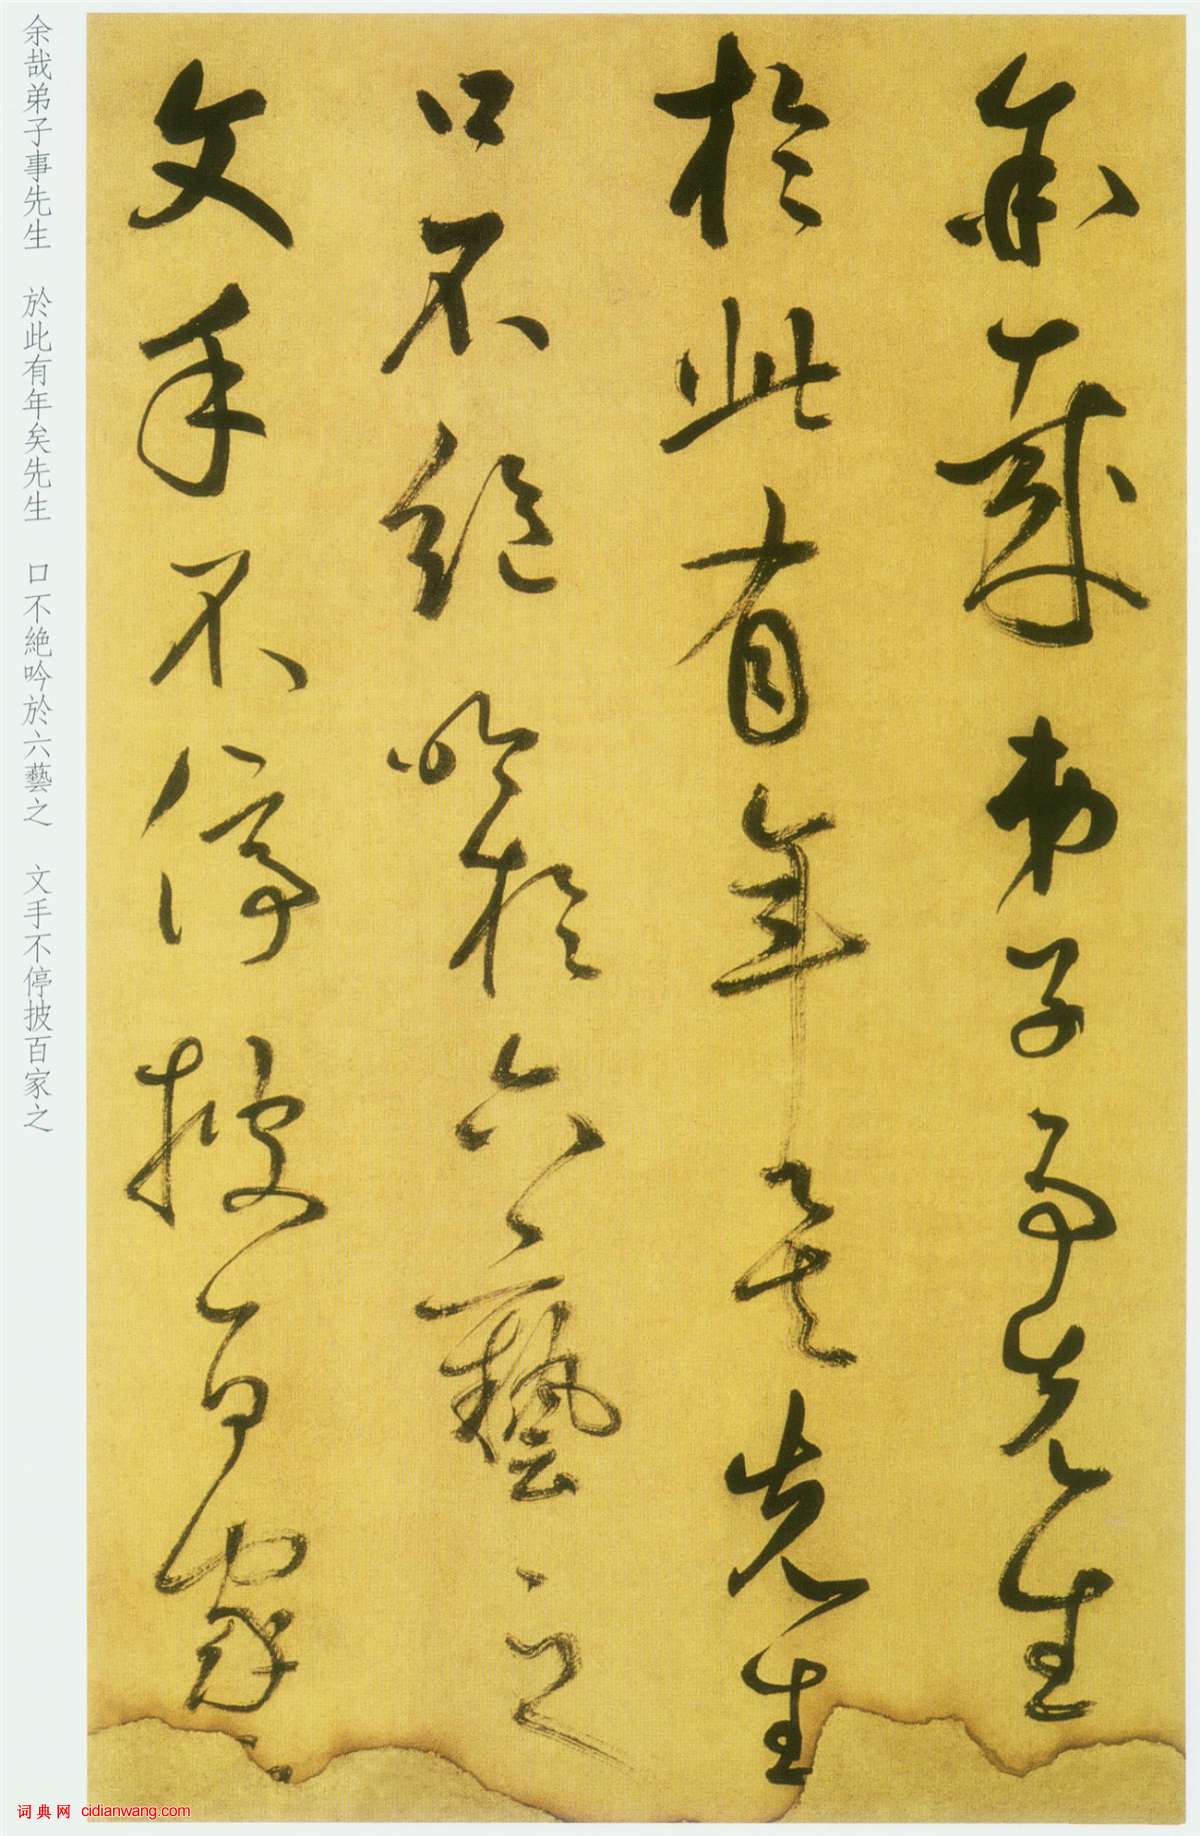 余哉弟子事先生
於此有年矣先生
口不絶吟於六藝之
文手不停披百家之
余哉弟子事先生　於此有年矣先生　口不絶吟於六藝之　文手不停披百家之
词典网 cidianwang.com